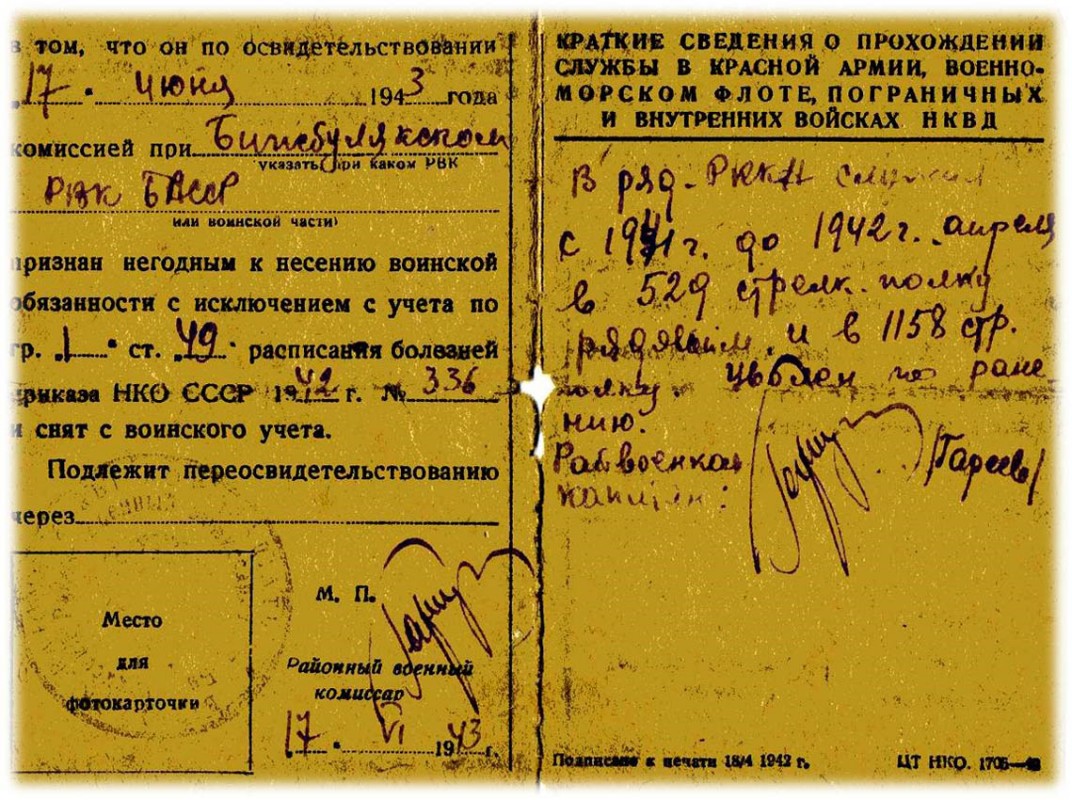 в том, что он по освидетельствовании
„17" июня 1943 года
комиссией при Бижбулякском
указать при каком РВК
РВК БАССР
или воинской части)
признан негодным к несению воинской
обязанности с исключением с учета по
гр. „I" ст. „49" расписания болезней
приказа НКО СССР 1942 г. № 336
и снят с воинского учета.
Подлежит переосвидетельствованию
через
Место
для
фотокарточки
М. П.
Районный военный
комиссар
17 VI 1943 г.
КРАТКИЕ СВЕДЕНИЯ О ПРОХОЖДЕНИИ
СЛУЖБЫ В КРАСНОЙ АРМИИ, ВОЕННО-
МОРСКОМ ФЛОТЕ, ПОГРАНИЧНЫХ
И ВНУТРЕННИХ ВОЙСКАХ НКВД
В ряд. РККА служил
с 1941 г. до 1942 г. апреля
в 529 стрелк. полку
рядовым и в 1158 стр.
полку. Уволен по ране
нию.
Райвоенком
капитан: /Гареев/
Подписано к печати 18/4 1942 г. ЦТ НКО. 1705—42